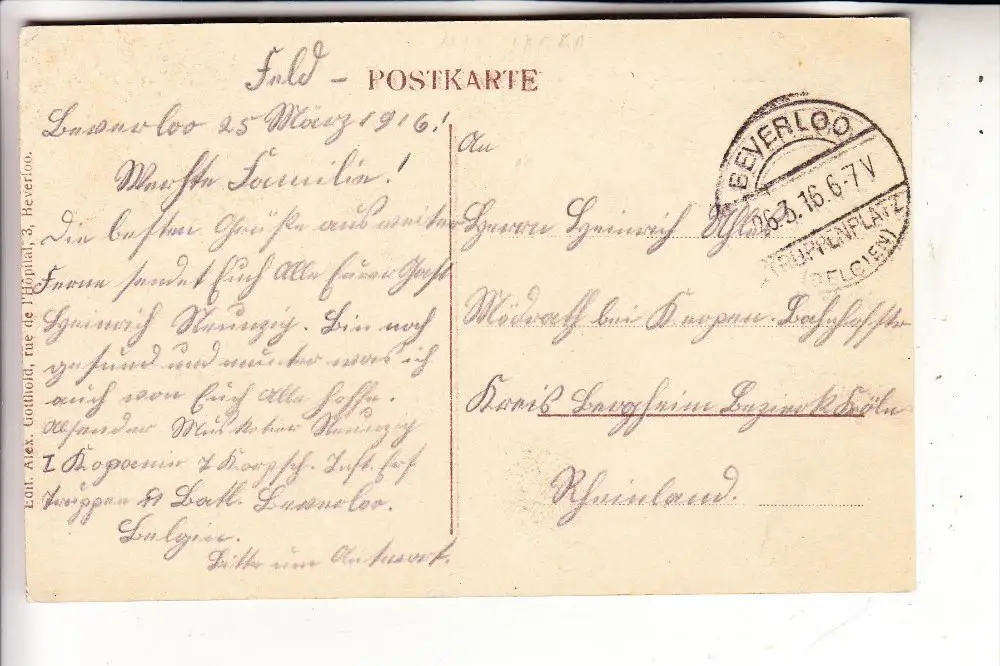 Feld - POSTKARTE
Beverloo 25 März 1916!
Werhte Familie!
Die besten Grüße aus weiter
Ferne sendet Euch Alle Eurer Gast
Heinrich Neunzig. Bin noch
gesund und munter was ich
auch von Euch Alle hoffe.
Absender Musketier Neunzig
I Kopanie 7 Korpsch. Inft. Ers
Truppen Batl. Beverloo.
Belgien.
Bitte um Antwort.
An
Herrn Heinrich
Mödrath bei Kerpen. Bahnhofstr
Kreis Bergheim Bezierk Köln
Rheinland.
BEVERLOO
26.3.16.6-7V
TRUPPENPLATZ
(BELGIEN)
Edit. Alex. Gotthold, rue de l'Hôpital, 3, Beverloo.